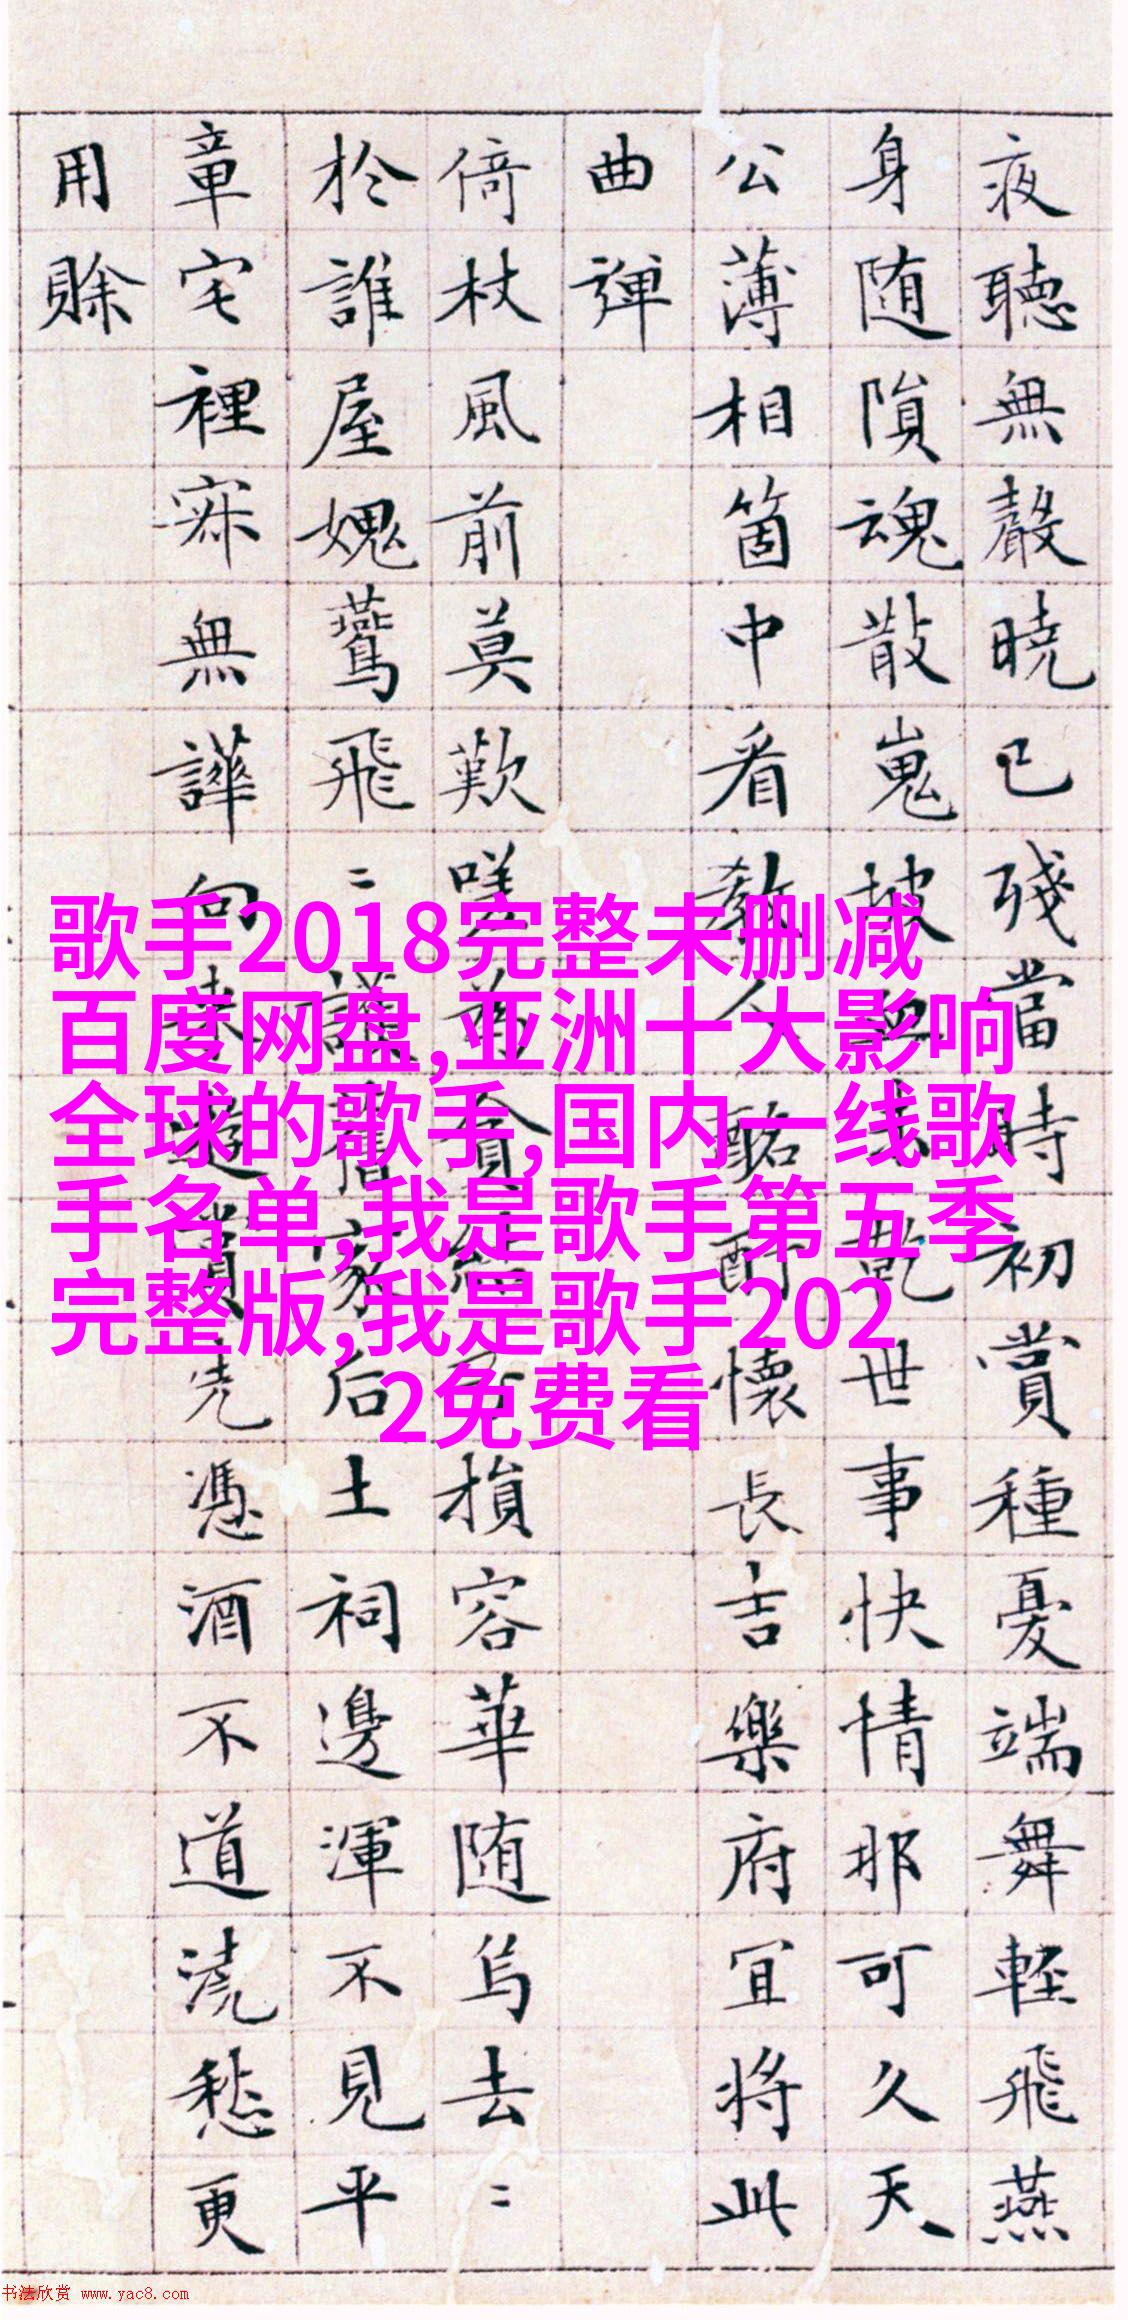 夜聽無聲曉已殘當時初賞種憂端舞輕飛燕
身随隕魂散嵬坡血未乾世事快情那可久天
公薄相箇中看教人酩酊懷長吉樂府宜將此
曲彈
倚杖風前莫歎嗟為貧損容華随烏去〻
於誰屋媿鷰飛〻護舊家后土祠邊渾不見平
章宅裡寐無譁向來遊賞先憑酒不道澆愁更
用賒
歌手2018完整未删减
百度网盘,亚洲十大影响
全球的歌手,国内一线歌
手名单,我是歌手第五季
完整版,我是歌手202
2免费看
书法欣赏 www.yac8.com